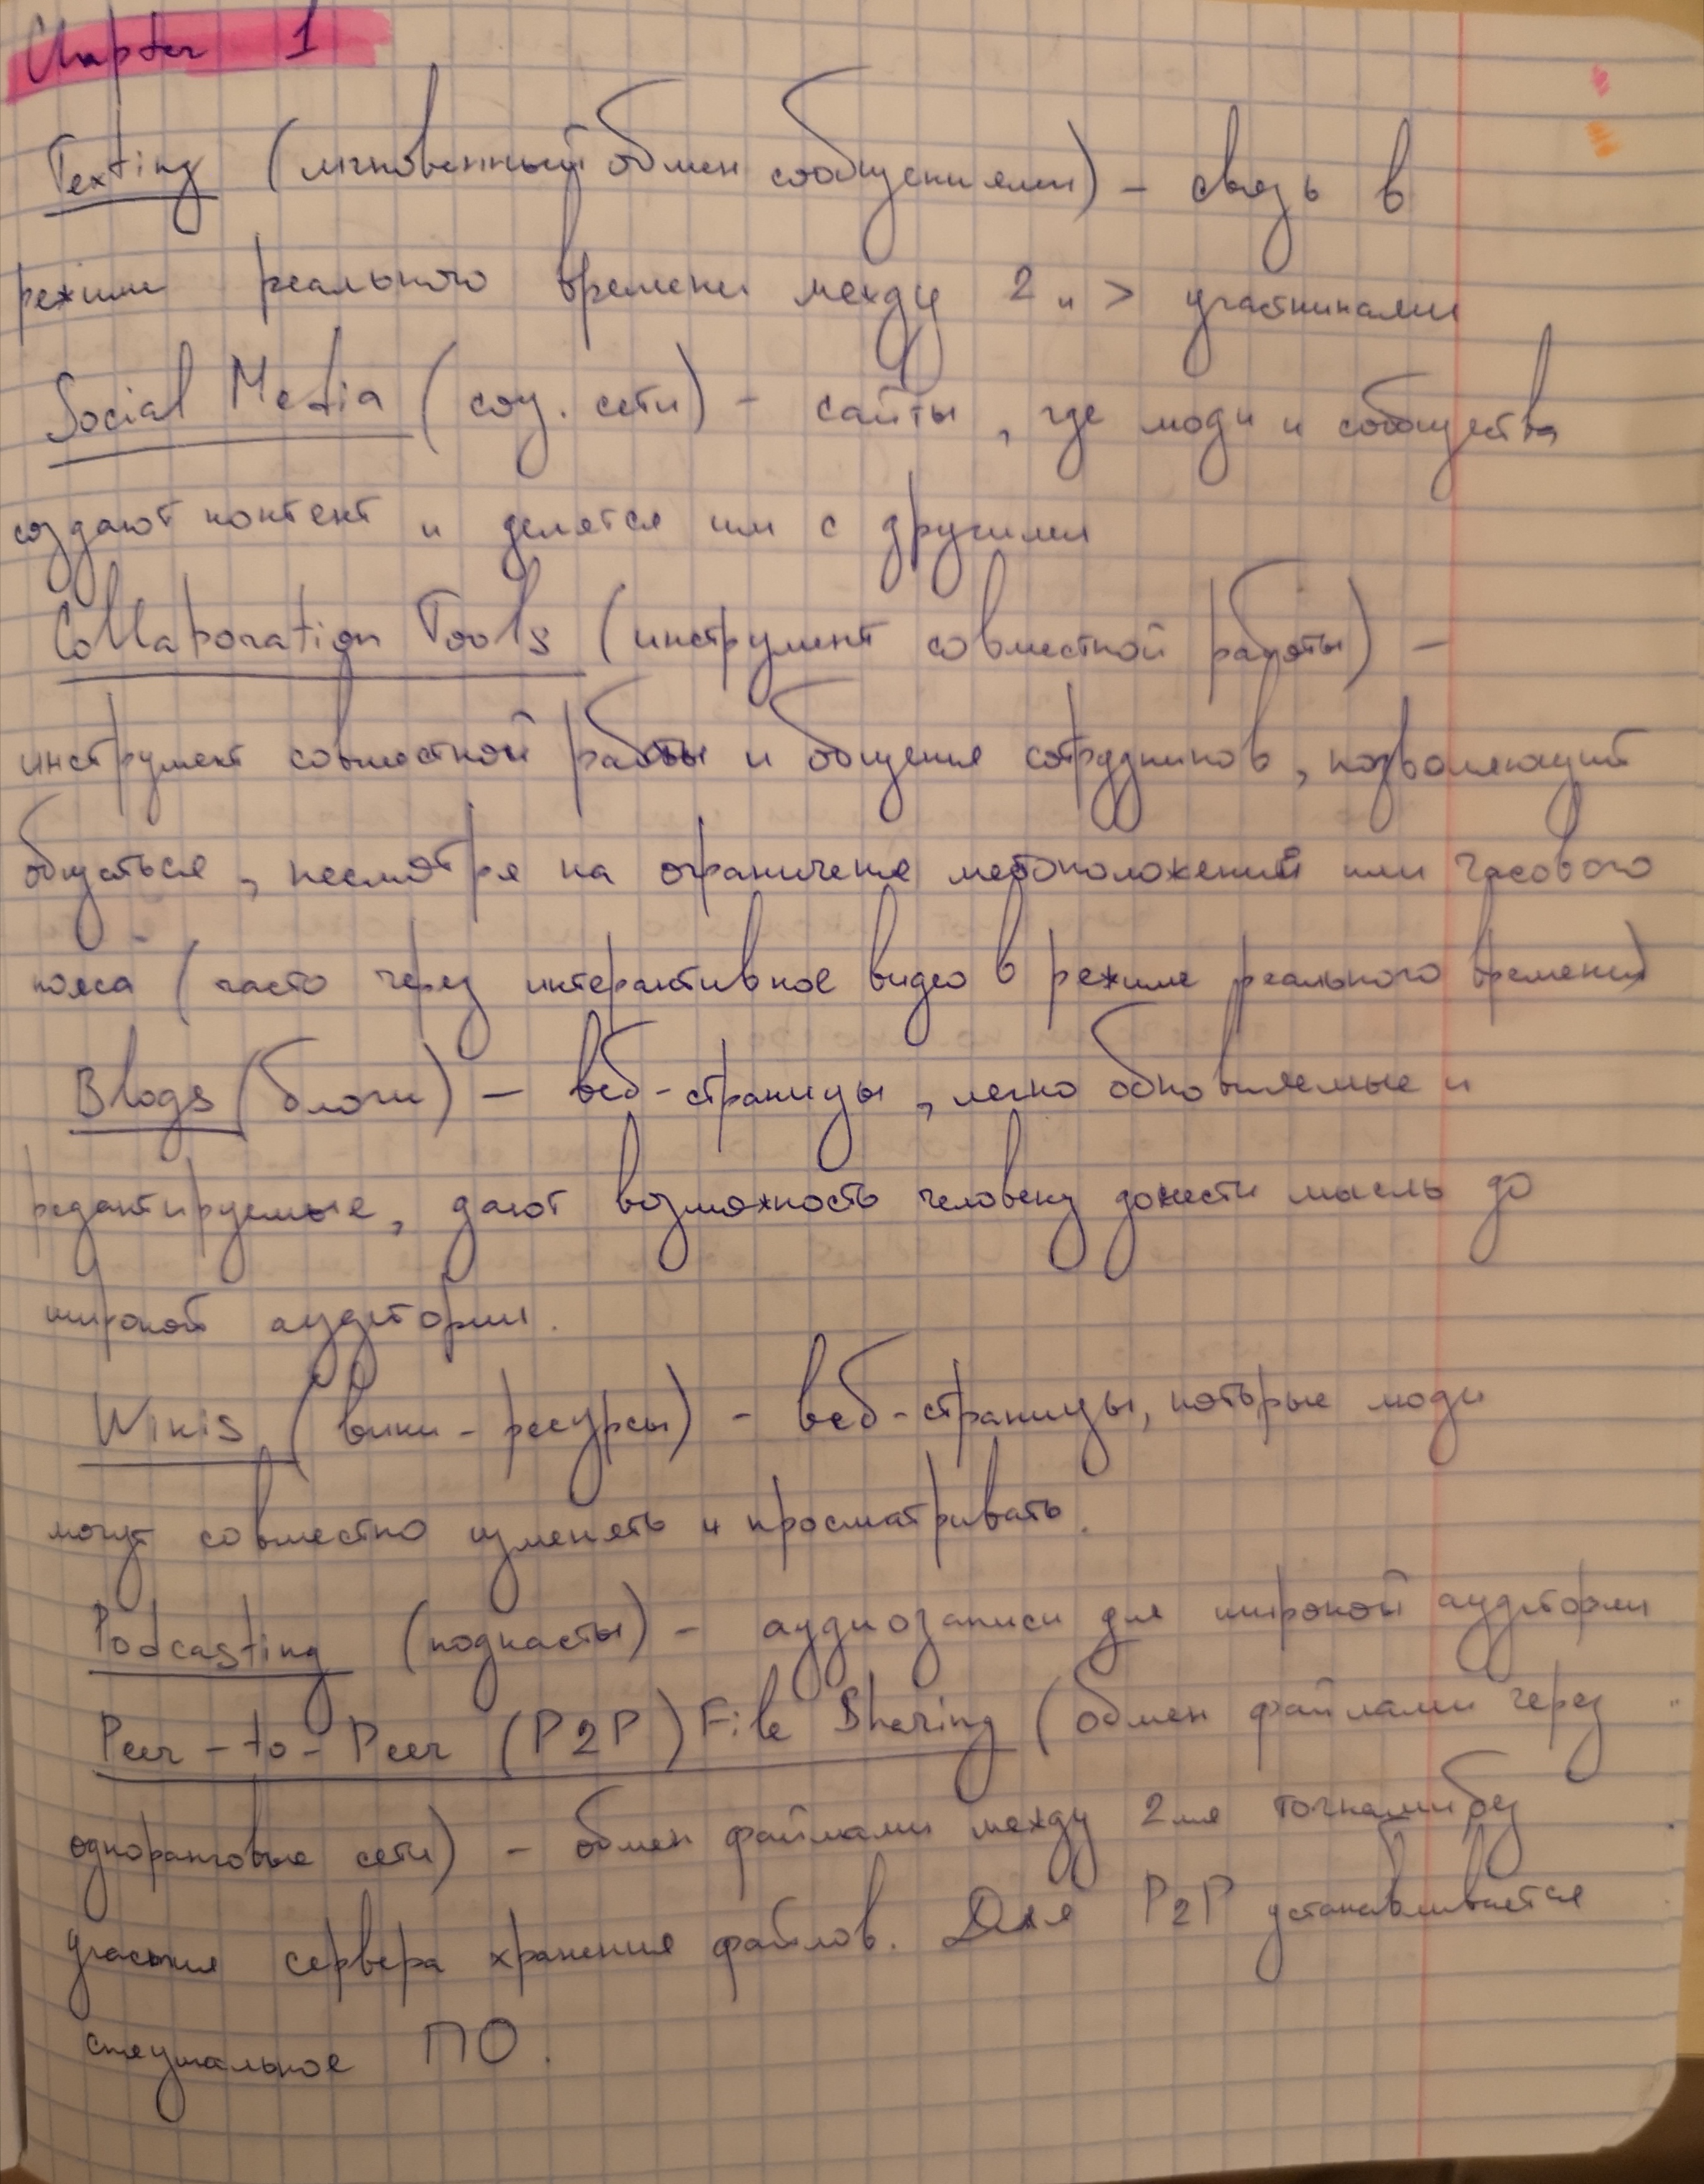 Chapter 1
Texting (мгновенный обмен сообщениями) – связь в
режиме реального времени между 2 и > участниками
Social Media (соц. сети) – сайты, где люди и сообщества
создают контент и делятся им с другими
Collaboration Tools (инструмент совместной работы) –
инструмент совместной работы и общения сотрудников, позволяющий
общаться, несмотря на ограничения местоположений или часового
пояса (часто через интерактивное видео в режиме реального времени)
Blogs (блоги) – веб-страницы, легко обновляемые и
редактируемые, дают возможность человеку донести мысль до
широкой аудитории.
Wikis (вики-ресурсы) – веб-страницы, которые люди
могут совместно изменять и просматривать.
Podcasting (подкасты) – аудиозаписи для широкой аудитории
Peer-to-Peer (P2P) File Sharing (обмен файлами через
одноранговые сети) – обмен файлами между 2мя точками без
участия сервера хранения файлов. Для P2P устанавливается
специальное ПО.